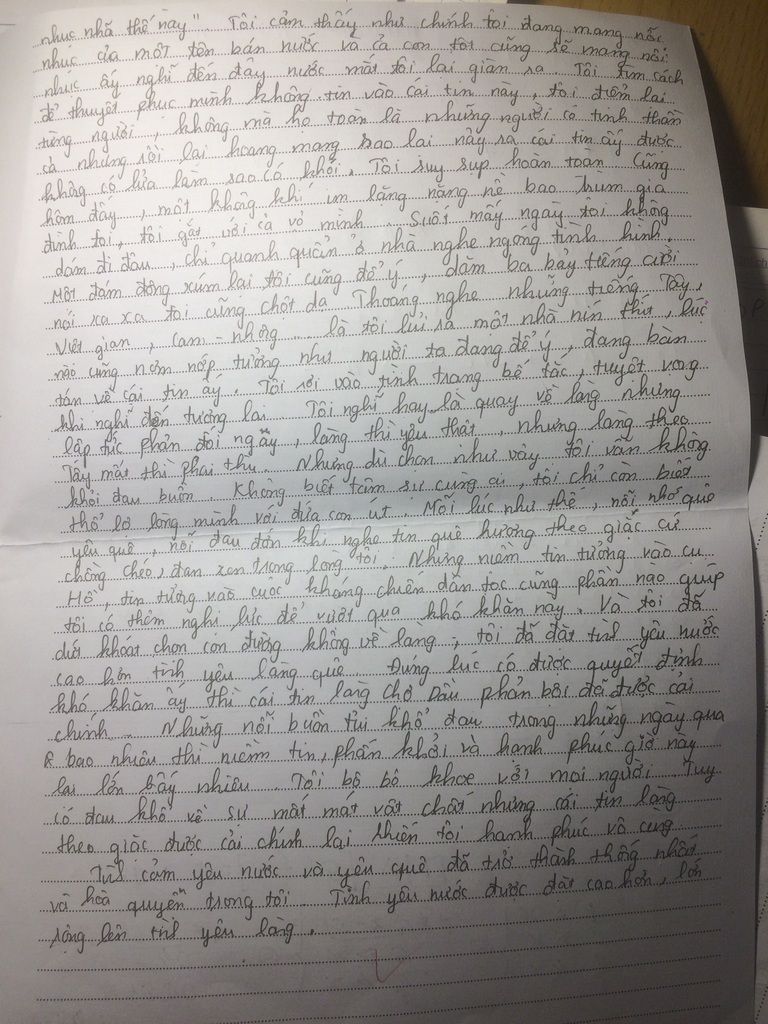 nhục nhã thế này". Tôi cảm thấy như chính tôi đang mang nỗi
nhục của một tên bán nước và cả con tôi cũng sẽ mang nỗi
nhục ấy nghĩ đến đây nước mắt tôi lại giàn ra. Tôi tìm cách
để thuyết phục mình không tin vào cái tin này, tôi điểm lại
từng người, không mà họ toàn là những người có tinh thần
cả nhưng rồi lại hoang mang sao lại nảy ra cái tin ấy được
không có lửa làm sao có khói. Tôi suy sụp hoàn toàn. Cũng
hôm đấy, một không khí im lặng nặng nề bao trùm gia
đình tôi, tôi gắt với cả vợ mình. Suốt mấy ngày tôi không
dám đi đâu, chỉ quanh quẩn ở nhà nghe ngóng tình hình.
Một đám đông xúm lại tôi cũng để ý, dăm ba bảy tiếng cười
nói xa xa tôi cũng chột dạ. Thoang nghe những tiếng Tây,
Việt gian, cam - nhông... là tôi lủi ra một nhà nín thít, lúc
nào cũng nơm nớp tưởng như người ta đang để ý, đang bàn
tán về cái tin ấy. Tôi rơi vào tình trạng bế tắc, tuyệt vọng
khi nghĩ đến tương lai. Tôi nghĩ hay là quay về làng nhưng
lập tức phản đối ngay, làng thì yêu thật, nhưng làng theo
Tây mất thì phải thù. Nhưng dù chọn như vậy tôi vẫn không
khỏi đau buồn. Không biết tâm sự cùng ai, tôi chỉ còn biết
thổ lộ lòng mình với đứa con út. Mỗi lúc như thế, nỗi nhớ quê
yêu quê, nỗi đau đớn khi nghe tin quê hương theo giặc cứ
chồng chéo, đan xen trong lòng tôi. Nhưng niềm tin tưởng vào cụ
Hồ, tin tưởng vào cuộc kháng chiến dân tộc cũng phần nào giúp
tôi có thêm nghị lực để vượt qua khó khăn này. Và tôi đã
dứt khoát chọn con đường không về làng, tôi đã đặt tình yêu nước
cao hơn tình yêu làng quê. Đúng lúc có được quyết định
khó khăn ấy thì cái tin làng chợ Dầu phản bội đã được cải
chính. Những nỗi buồn tủi khổ đau trong những ngày qua
bao nhiêu thì niềm tin, phấn khởi và hạnh phúc giờ này
lại lớn bấy nhiêu. Tôi bô bô khoe với mọi người. Tuy
có đau khổ về sự mất mát vật chất nhưng cái tin làng
theo giặc được cải chính lại khiến tôi hạnh phúc vô cùng
Tình cảm yêu nước và yêu quê đã trở thành thống nhất
và hoà quyện trong tôi. Tình yêu nước được đặt cao hơn, lớn
rộng lên tình yêu làng.